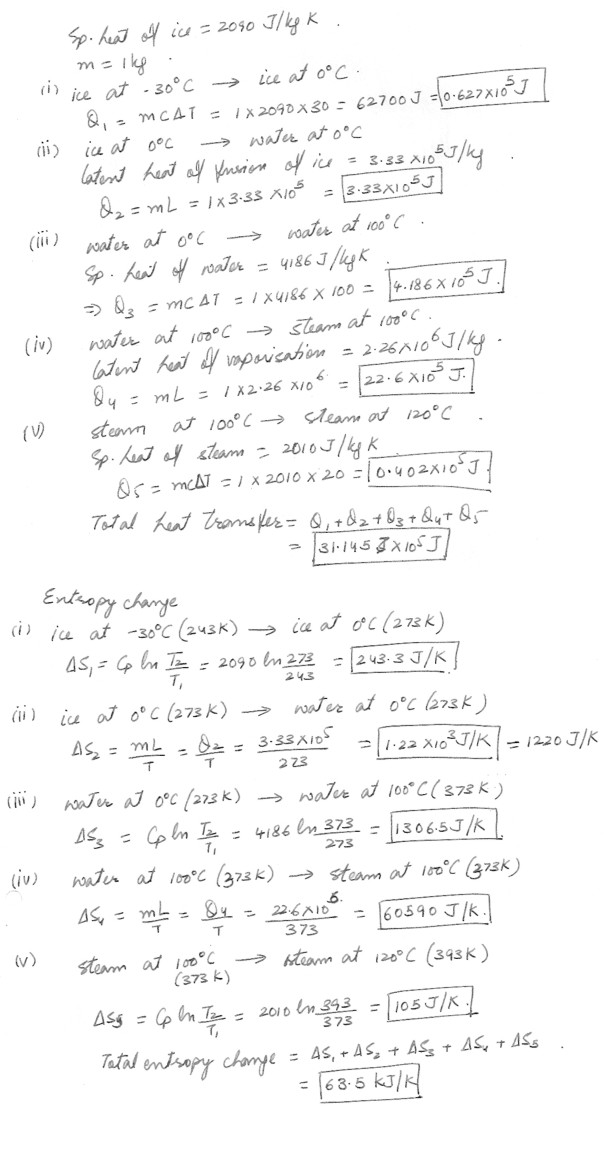 Sp. heat of ice = 2090 J/kg K.
m = 1 kg.
(i) ice at -30°C → ice at 0°C.
Q₁ = mCΔT = 1×2090×30 = 62700 J = 0.627×10⁵ J
(ii) ice at 0°C → water at 0°C
latent heat of fusion of ice = 3.33×10⁵ J/kg.
Q₂ = mL = 1×3.33×10⁵ = 3.33×10⁵ J
(iii) water at 0°C → water at 100°C.
Sp. heat of water = 4186 J/kg K.
⇒ Q₃ = mCΔT = 1×4186×100 = 4.186×10⁵ J.
(iv) water at 100°C → steam at 100°C.
latent heat of vaporisation = 2.26×10⁶ J/kg.
Q₄ = mL = 1×2.26×10⁶ = 22.6×10⁵ J.
(v) steam at 100°C → steam at 120°C.
Sp. heat of steam = 2010 J/kg K
Q₅ = mcΔT = 1×2010×20 = 0.402×10⁵ J.
Total heat transfer = Q₁+Q₂+Q₃+Q₄+Q₅
= 31.145 ×10⁵ J
Entropy change
(i) ice at -30°C (243K) → ice at 0°C (273K)
ΔS₁ = Cp ln T₂/T₁ = 2090 ln 273/243 = 243.3 J/K
(ii) ice at 0°C (273K) → water at 0°C (273K)
ΔS₂ = mL/T = Q₂/T = 3.33×10⁵/273 = 1.22×10³ J/K = 1220 J/K
(iii) water at 0°C (273K) → water at 100°C (373K)
ΔS₃ = Cp ln T₂/T₁ = 4186 ln 373/273 = 1306.5 J/K.
(iv) water at 100°C (373K) → steam at 100°C (373K)
ΔS₄ = mL/T = Q₄/T = 22.6×10⁶/373 = 60590 J/K.
(v) steam at 100°C (373K) → steam at 120°C (393K)
ΔS₅ = Cp ln T₂/T₁ = 2010 ln 393/373 = 105 J/K.
Total entropy change = ΔS₁+ΔS₂+ΔS₃+ΔS₄+ΔS₅.
= 63.5 kJ/K